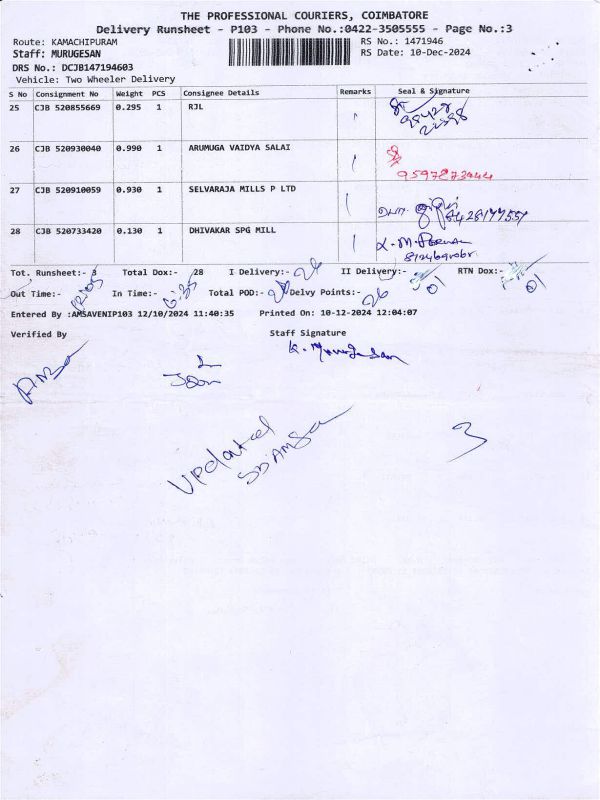 THE PROFESSIONAL COURIERS, COIMBATORE
Delivery Runsheet - P103 - Phone No.:0422-3505555 - Page No.:3
Route: KAMACHIPURAM RS No.: 1471946
Staff: MURUGESAN RS Date: 10-Dec-2024
DRS No.: DCJB147194603
Vehicle: Two Wheeler Delivery
S No Consignment No Weight PCS Consignee Details Remarks Seal & Signature
25 CJB 520855669 0.295 1 RJL
26 CJB 520930040 0.990 1 ARUMUGA VAIDYA SALAI
9597873444
27 CJB 520910059 0.930 1 SELVARAJA MILLS P LTD
28 CJB 520733420 0.130 1 DHIVAKAR SPG MILL
Tot. Runsheet:- 3 Total Dox:- 28 I Delivery:- II Delivery:- 01 RTN Dox:- 01
Out Time:- In Time:- Total POD:- Delvy Points:- 26
Entered By :AMSAVENIP103 12/10/2024 11:40:35 Printed On: 10-12-2024 12:04:07
Verified By Staff Signature
K. Murugesan
Amsa
Updated
SD Amsa
3